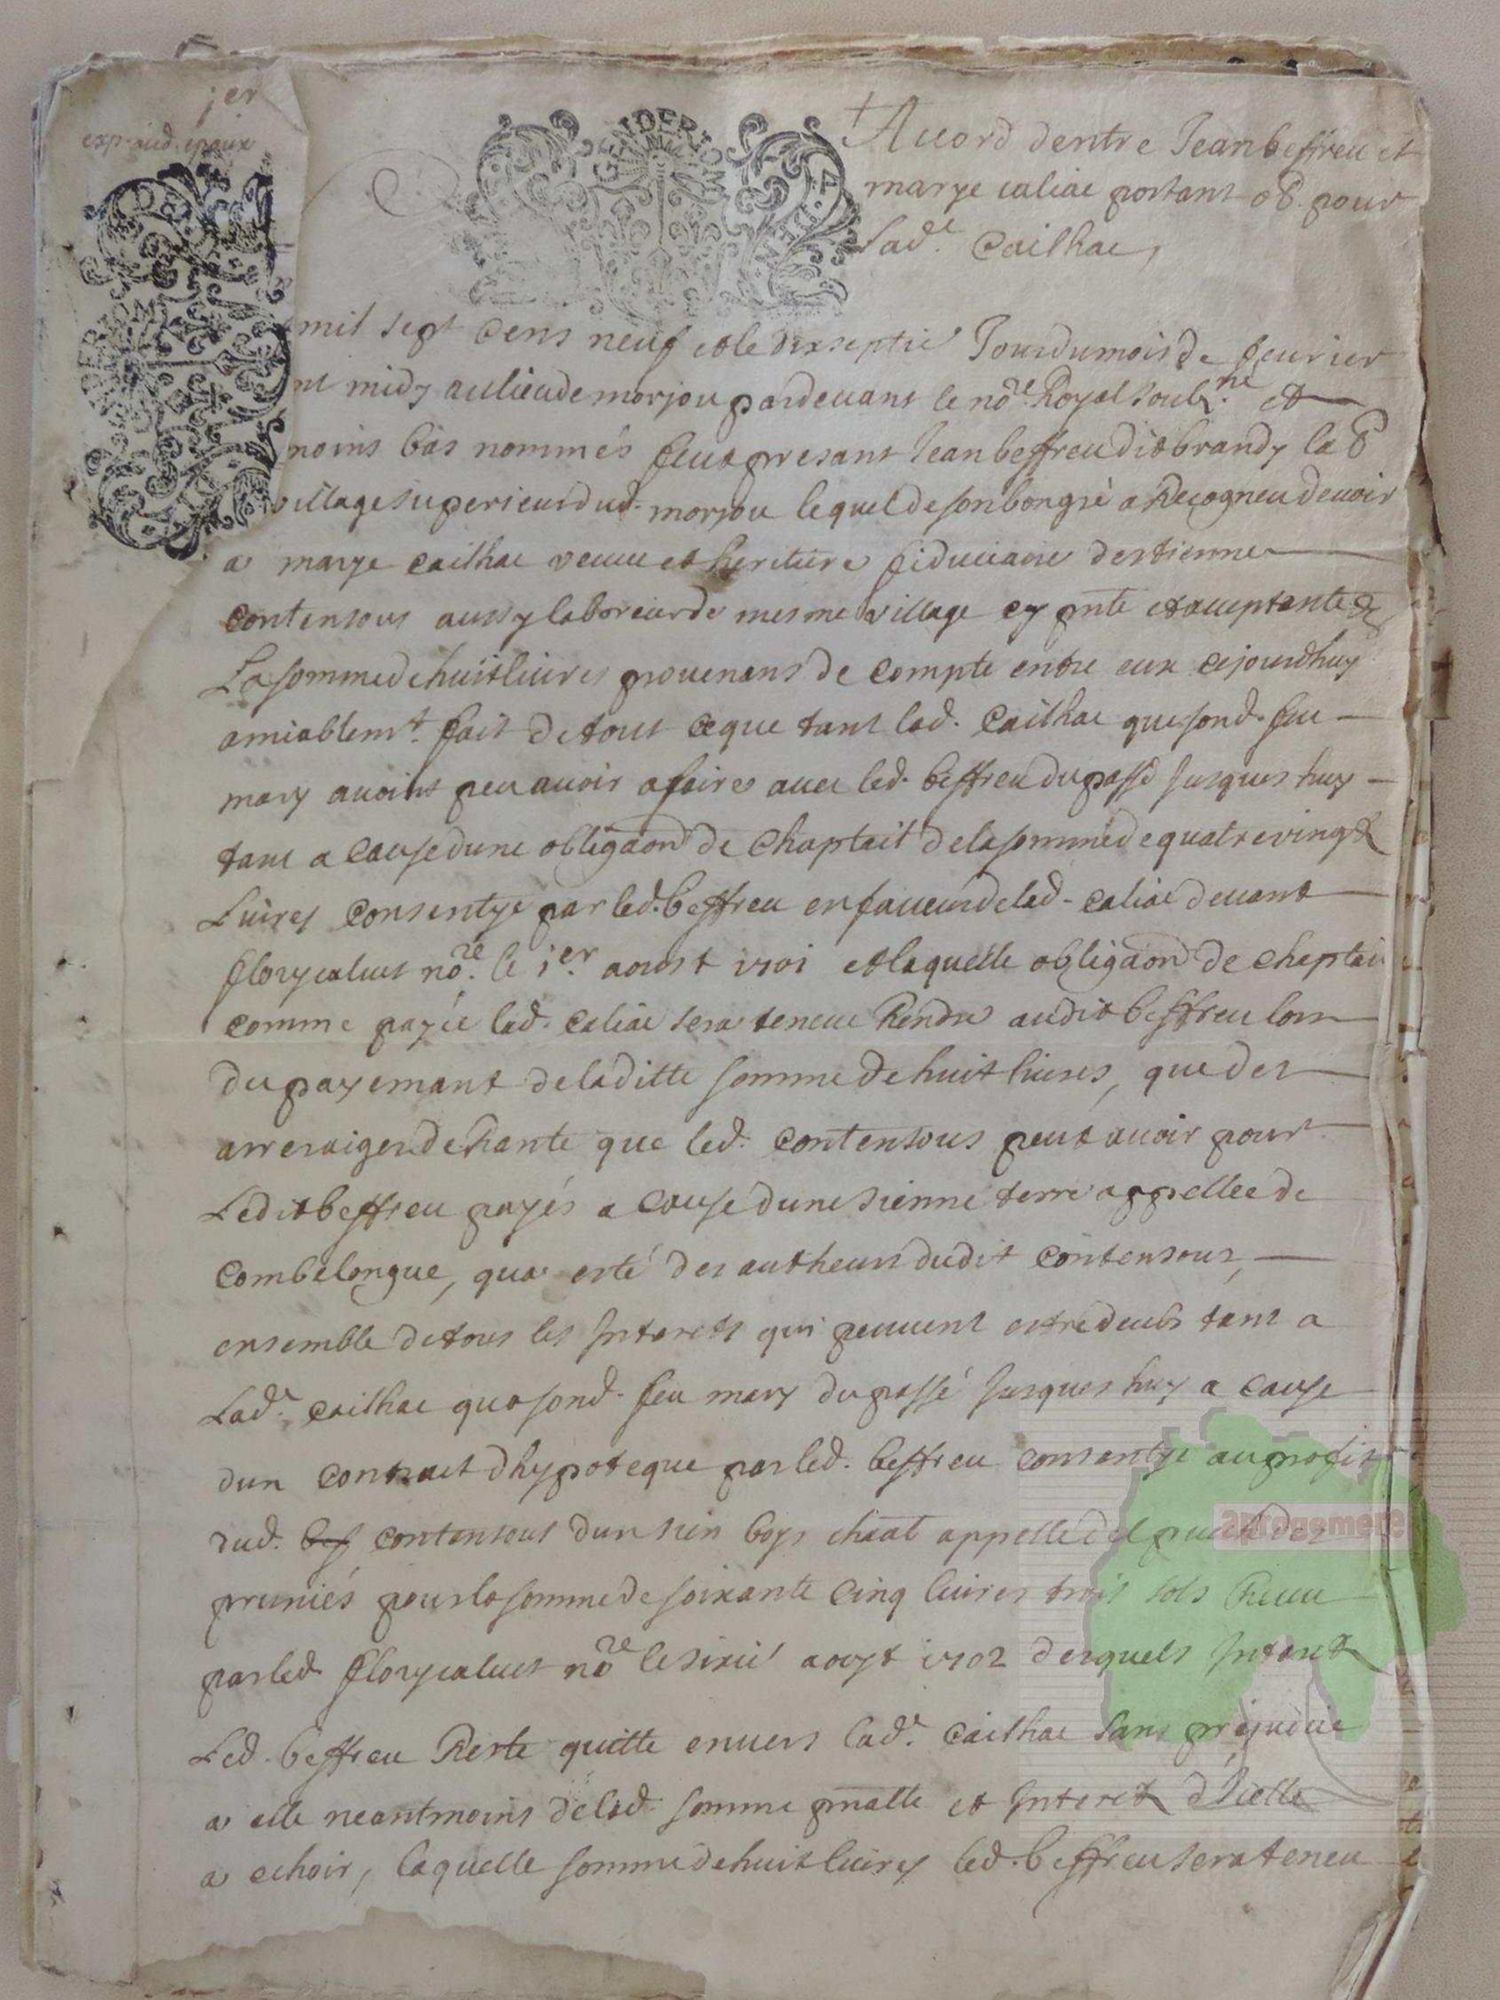 jer
exp. aud. epoux
GEN DE RION
GEN DE RION
Accord dentre Jean beffreu et
marye caliac portant ob. pour
lad.e Cailhac,
mil sept cens neuf et le dixseptie Jour du mois de feurier
nt midy au lieu de morjou pardeuant le no.re Royal soub.né et
moins bas nommés feut presant Jean beffreu dit brandy lab
village superieur dud. morjou lequel de son bon gré a Recogneu deuoir
a marye cailhac veuue et heritiere fiduciaire destienne
contensous aussy laboreur de mesme village cy pnte et acceptante
La somme de huit liures prouenans de compte entre eux cejourdhuy
amiablemt. fait de tout ce que tant lad. Cailhac que sond. feu
mary auoint peu auoir afaire auec led. beffreu du passé Jusques huy
tant a cause dune obligaon de chaptail de la somme de quatre vingt
Luires consentye par led. beffreu en faueur de lad. caliac deuant
florycalues no.re le jer. aoust 1701 et laquelle obligaon de cheptail
comme payée lad. caliac sera teneue Rendre audit beffreu lors
du payemant de laditte somme de huit liures, que des
arreraiges de Rante que led. contensous peut auoir pour
Ledit beffreu payés a cause dune sienne terre appellee de
combelongue, qua esté des autheurs dudit contensous,
ensemble de tous les Interets qui peuuent estre deubs tant a
Lad.e cailhac qua sond. feu mary du passé Jusques huy a cause
dun contract dhypoteque par led. beffreu consentye au profit
dud. bef contensous dun sien boys chaat appellé del puech des
pruniés pour la somme de soixante cinq liures trois sols Receu
par led. florycalues no.re le sixié aoust 1702 desquels Interet
Led. beffreu Reste quitte enuers lad.e cailhac sans prejudice
a elle neantmoins de lad. somme pnalle et Interet dicelle
a echoir, laquelle somme de huit liures led. beffreu sera teneu
aprogemere